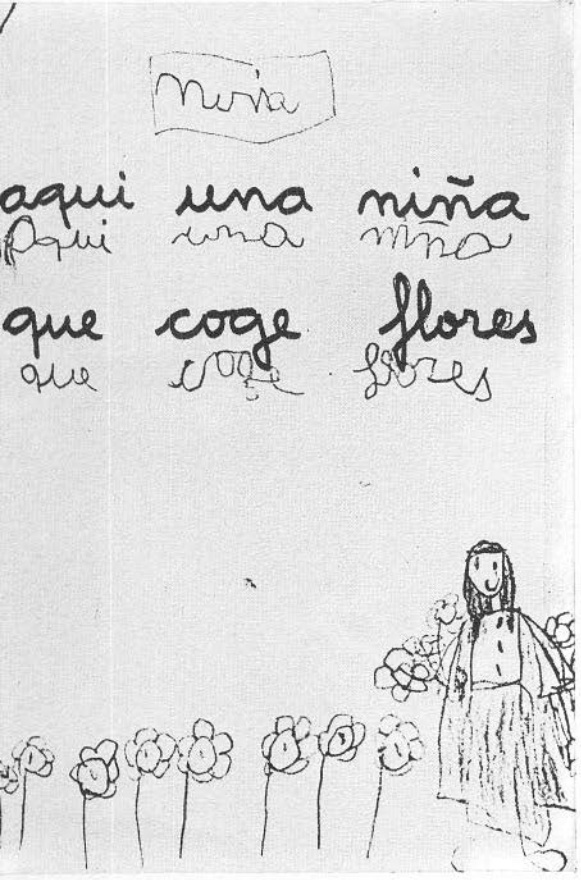 Nuria
aqui una niña
Aqui una niña
que coge flores
que coge flores